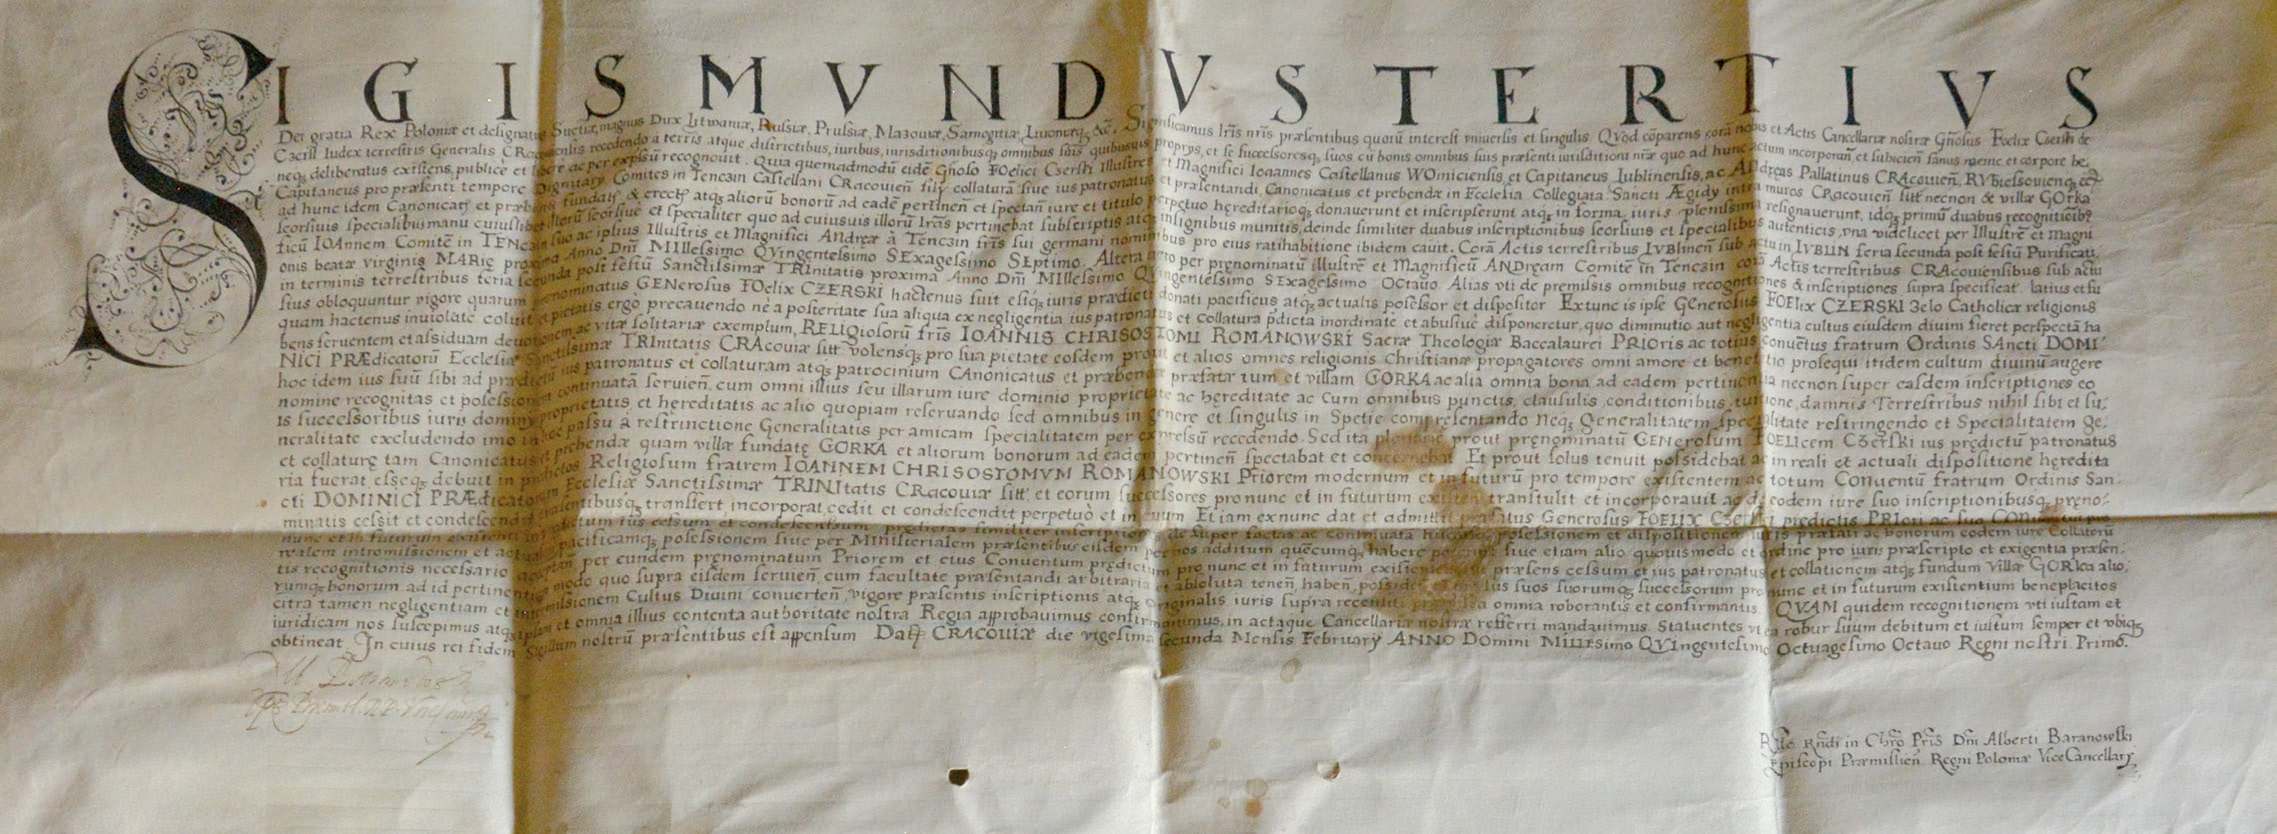 SIGISMVNDVS TERTIVS
Dei gratia Rex Poloniæ et designatus Suetiæ, magnus Dux Litwaniæ, Russiæ, Prussiæ, Mazouiæ, Samogitiæ, Liuoniæq, &c. Significamus lr̃is nr̃is præsentibus quorũ interest vniuersis et singulis. QVod cõparens corã nobis et Actis Cancellariæ nostræ Gñosus Foelix Cserski de
Czerss Iudex terrestris Generalis CRacouiensis recedendo à terris atque districtibus, iuribus, iurisditionibusq omnibus suis quibusuis proprys, et se successoresq suos cũ bonis omnibus suis præsenti iurisditioni nr̃æ quo ad hunc actum incorporan̄ et subiicien̄ sanus mente et corpore be,
neq deliberatus existens, publicè et liberè ac per exp̃ssũ recognouit. Quia quemadmodũ eidẽ Gñoso FOelici Cserski Illustres et Magnifici Ioannes Castellanus WOiniciensis, et Capitaneus Lublinensis, ac ANdreas Pallatinus CRAcouien̄ RVbiessouienq
Capitaneus pro præsenti tempore Dignitary Comites in Tenczin Castellani CRacouien̄ fily collaturã siue ius patronatus et præsentandi Canonicatus et prebendæ in Ecclesia Collegiata Sancti Ægidy intra muros CRacouien̄ sitt̃ necnon de villæ GOrka
ad hunc idem Canonicatũ et præbendã fundatẽ & erectẽ atq aliorũ bonorũ ad eadẽ pertinen̄ et spectan̄ iure et titulo perpetuo hæreditarioq donauerunt et inscripserunt atq in forma iuris plenissima resignauerunt, idq primũ duabus recognitiõibq
seorsiuis specialibus manu cuiuslibet illorũ seorsiue et specialiter quo ad cuiusuis illorũ lr̃as pertinebat subscriptis atq insignibus munitis, deinde similiter duabus inscriptionibus seorsiuis et specialibus autenticis, vna videlicet per Illustrẽ et Magni
ficũ IOAnnem Comitẽ in TENczin suo ac ipsius Illustris et Magnifici Andreæ à Tenczin fr̃is sui germani nominibus pro eius ratihabitione ibidem cauit. Corã Actis terrestribus LVblinen̄ sub actu in LVBLIN feria secunda post festũ Purificati,
onis beatæ virginis MARię proxima Anno Dñi MIllesimo QVingentesimo SExagesimo SEptimo. Altera vero per pręnominatũ illustrẽ et Magnificũ ANDręam Comitẽ in Tenczin corã Actis terrestribus CRAcouiensibus sub actu
in terminis terrestribus feria secunda post festũ Sanctissimæ TRInitatis proxima Anno Dñi MIllesimo QVingentesimo SExagesimo Octauo Alias vti de premissis omnibus recognitiones & inscriptiones supra specificat̃ latius et fu
sius obloquuntur vigore quarum prenominatus GENerosus FOelix CZERSKI hactenus fuit estq iuris prædicti donati pacificus atq actualis possessor et dispositor Extunc is ipse Generosus FOElix CZERSKI zelo Catholicæ religionis
quam hactenus inuiolatè coluit et pietatis ergò precauendo nè a posteritate sua aliqua ex negligentia ius patronatus et collatura p̃dicta inordinatè et abusiuè disponeretur, quo diminutio aut negligentia cultus eiusdem diuini fieret perspectã ha
bens feruentem et assiduam deuotionem ac vitæ solitariæ exemplum, RELIgiosorũ fr̃is IOANNIS CHRISOSTOMI ROMANOWSKI Sacræ Theologiæ Baccalaurei PRIOris ac totius conuẽtus fratrum Ordinis SAncti DOMI,
NICI PRÆdicatorũ Ecclesiæ Sanctissimæ TRInitatis CRAcouiæ sitt̃ volensq pro sua pietate eosdem prout et alios omnes religionis Christianæ propagatores omni amore et beneficio prosequi itidem cultum diuinũ augere
hoc idem ius suũ sibi ad prædictũ ius patronatus et collaturam atq patrocinium CAnonicatus et præbendæ præfatæ tum et villam GORKA ac alia omnia bona ad eadem pertinentia necnon super easdem inscriptiones eo
nomine recognitas et possessionem continuatã seruien̄, cum omni illius seu illarum iure dominio proprietate ac hereditate ac cum omnibus punctis, clausulis, conditionibus, tuitione, damnis Terrestribus nihil sibi et su,
is successoribus iuris dominy proprietatis et hęreditatis ac alio quopiam reseruando sed omnibus in genere et singulis in Spetie compręsentando Neq Generalitatem specialitate restringendo et Specialitatem Ge,
neralitate excludendo imo in hoc passu à restrinctione Generalitatis per amicam specialitatem per expressũ recedendo. Sed ita plenariè prout prẽnominatũ GENerosum FOELIcem Czerski ius prędictũ patronatus
et collaturę tam Canonicatus et prebendæ quam villæ fundatę GORKA et aliorum bonorum ad eadem pertinen̄ spectabat et concernebat Et prout solus tenuit possidebat ac in reali et actuali dispositione hęredita
ria fuerat esseq debuit in prædictos Religiosum fratrem IOANNEM CHRISOSTOMVM ROMANOWSKI Priorem modernum et in futurũ pro tempore existentem ac totum Conuentũ fratrum Ordinis San,
cti DOMINICI PRÆdicatorum Ecclesiæ Sanctissimæ TRINItatis CRacouiæ sitt̃ et eorum successores pro nunc et in futurum existen̄ transtulit et incorporauit ac de eodem iure suo inscriptionibusq pręno,
minatis cessit et condescendit præsentibusq transfert, incorporat, cedit et condescendit perpetuò et in euum Etiam ex nunc dat et admittit præfatus Generosus FOELIX Czerski prędictis PRIori ac suo CONuentui pro
nunc et in futurum existenti in prædictum ius cessum et condescensum prędictas similiter inscriptiones desuper factas ac continuatã hucusq possessionem et dispositionem iuris præfati ac bonorum eodem iure Collatorũ
realem intromissionem et actualem pacificamq possessionem siue per Ministerialem præsentibus eisdem per nos additum quęcumq habere poterint siue etiam alio quouismodo et ordine pro iuris præscripto et exigentia præsen,
tis recognitionis necessario acceptan̄ per eundem pręnominatum Priorem et eius Conuentum prędictum pro nunc et in futurum existentem præsens cessum et ius patronatus et collationem atq fundum villæ GORka alio,
rumq bonorum ad id pertinentium modo quo supra eisdem seruien̄, cum facultate præsentandi arbitraria et absoluta tenen̄, haben̄, possiden̄ suos suorumq successorum pro nunc et in futurum existentium beneplacitos
citra tamen negligentiam et intermissionem Cultus Diuini conuerten̄, vigore præsentis inscriptionis atq Originalis iuris supra recensiti omnia roborantis et confirmantis. QVAM quidem recognitionem vti iustam et
iuridicam nos suscepimus atq ipsam et omnia illius contenta authoritate nostra Regia approbauimus confirmauimus, in actaque Cancellariæ nostræ refferri mandauimus. Statuentes vt ea robur suum debitum et iustum semper et vbiq
obtineat. In cuius rei fidem Sigillum nostrũ præsentibus est appensum Datt̃ CRACOVIÆ die vigesima secunda Mensis February ANNO DOmini MIllesimo QVIngentesimo Octuagesimo Octauo Regni nostri Primo.
Rñdi in Chr̃o Pr̃is Dñi Alberti Baranowski
Episcopi Præmislien̄ Regni Poloniæ ViceCancellary